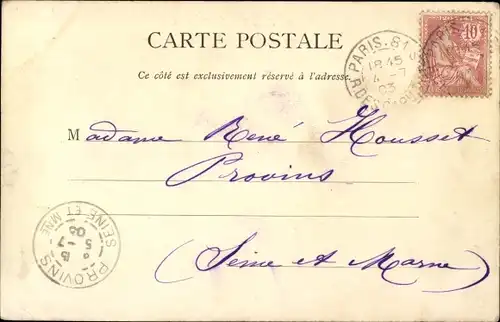 CARTE POSTALE
Ce côté est exclusivement réservé à l'adresse.
PARIS. 81
18 45
4 - 7
03
POSTES
10
Madame René Housset
Provins
(Seine et Marne)
PROVINS
SEINE ET MNE
5 - 7
03